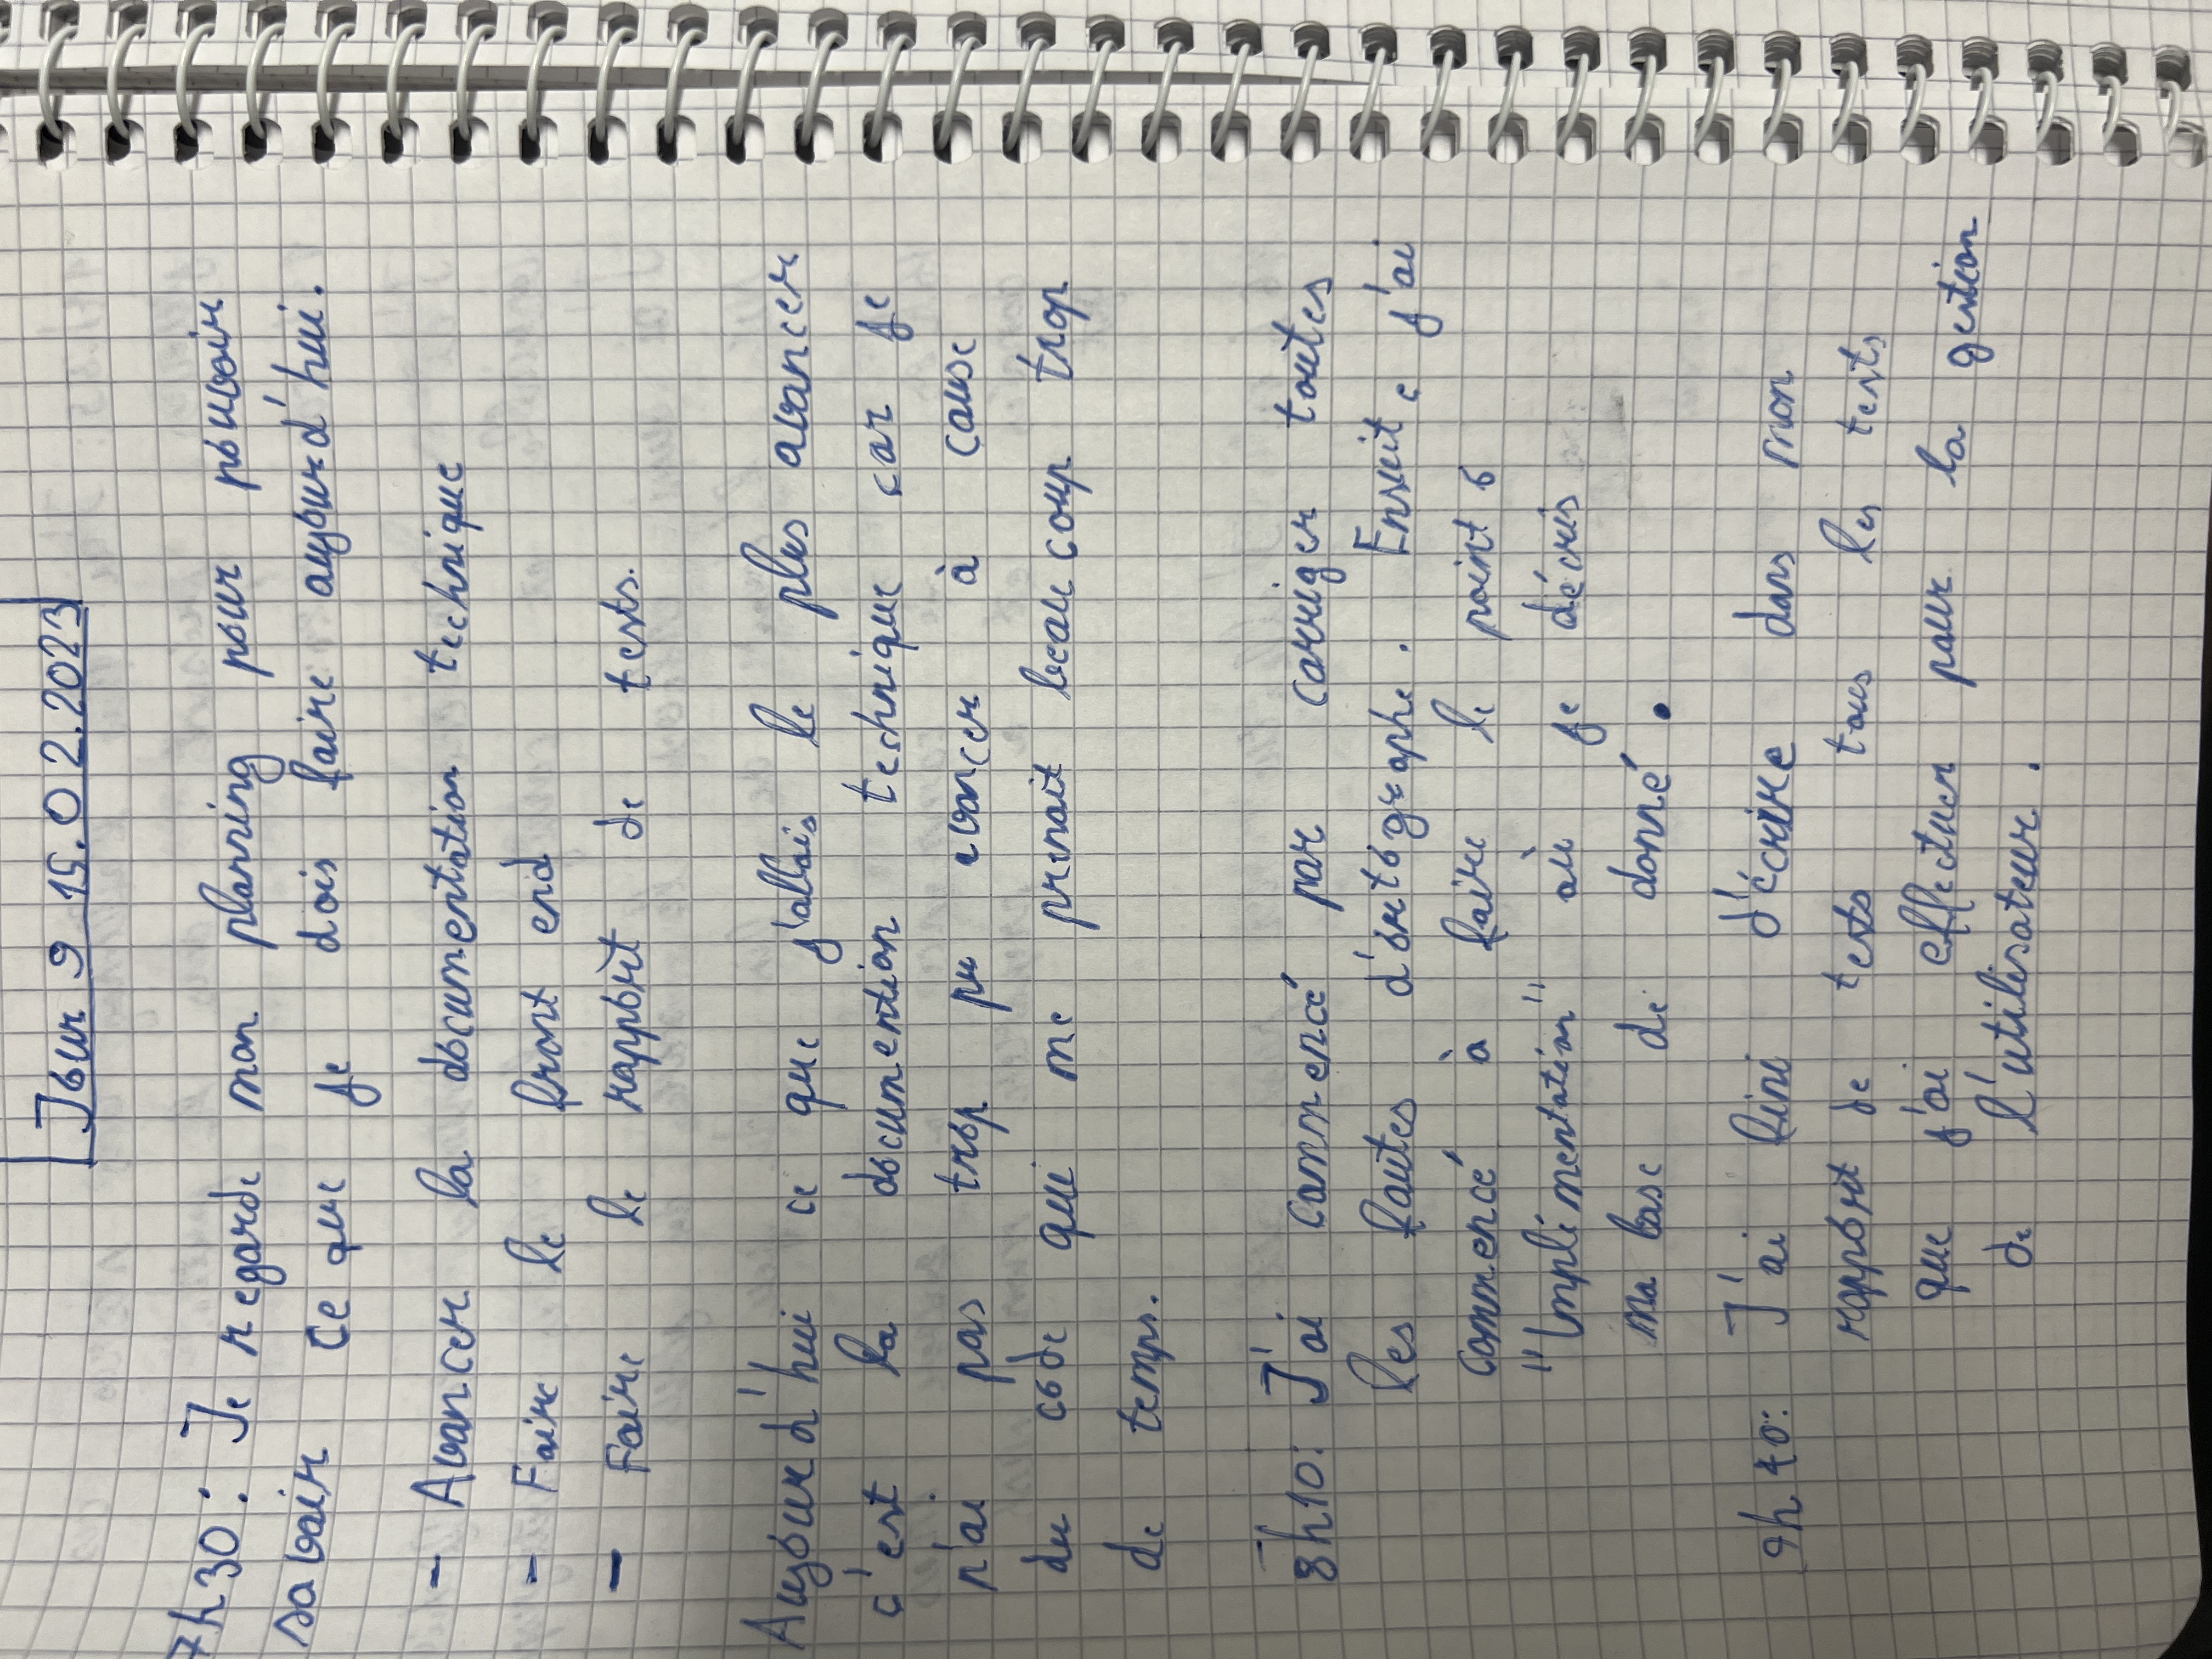 Jour 9 15.02.2023
7h30: Je regarde mon planning pour pouvoir
savoir ce que je dois faire aujourd'hui.
- Avancer la documentation technique
- Faire le front end
- Faire le rapport de tests.
Aujourd'hui ce que j'allais le plus avancer
c'est la documention technique car je
n'ai pas trop pu avancer à cause
du code qui me prenait beaucoup trop
de temps.
8h10: J'ai commencé par corriger toutes
les fautes d'ortographe. Ensuite j'ai
commencé à faire le point 6
"Implémentation" où je décris
ma base de donné.
9h40: J'ai fini d'écrire dans mon
rapport de tests tous les tests
que j'ai effectuer pour la gestion
de l'utilisateur.